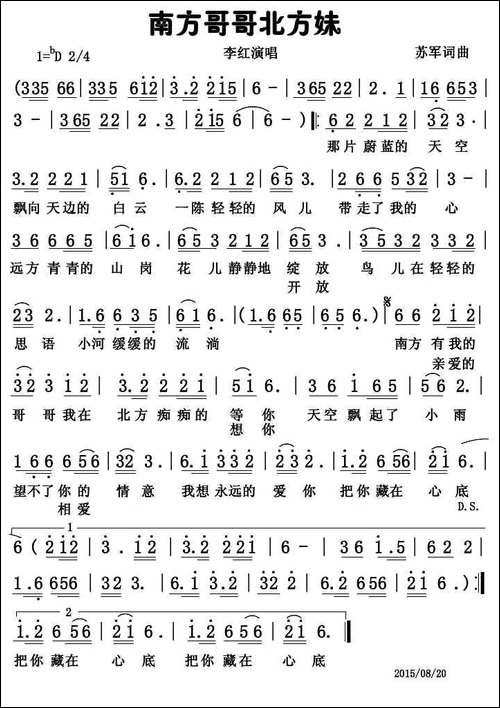 南方哥哥北方妹
1=ᵇD 2/4 李红演唱 苏军词曲
(335 66|335 612|3.2 215|6 -|365 22|2. 1|16 653|
3 -|365 22|2 .3|2 15 6|6 -)|: 62 212|32 3.|
那片蔚蓝的 天空
3.2 221|51 6.|6.2 212|65 3.|2 66 532|3 -|
飘向天边的 白云 一陈轻轻的 风儿 带走了我的 心
36 665|61 6.|65 3532|35 3.|53 322|322 3|
远方青青的 山岗 花儿静静地 绽放 鸟儿在轻轻的
开放
23 2.|1.6 635|61 6.|(1.6 165|65 6.)|66 212|
思语 小河缓缓的 流淌 南方有我的
亲爱的
32 3 12|3.2 221|51 6.|36 165|56 2.|
哥哥我在 北方痴痴的 等你 天空飘起了 小雨
想你
166 656|32 3.|6.1 332|21 6.|1.2 656|21 6.|
望不了你的 情意 我想永远的 爱你 把你藏在 心底
相爱 D.S.
1
6 (212|3 . 12|2 15|6 -|36 1.5|62 2|
1.6 656|32 3.|6.1 332|21 6.|1.2 656|21 6.):|
2
1.2 656|21 6.|1.2 656|21 6.‖
把你藏在 心底 把你藏在 心底
2015/08/20